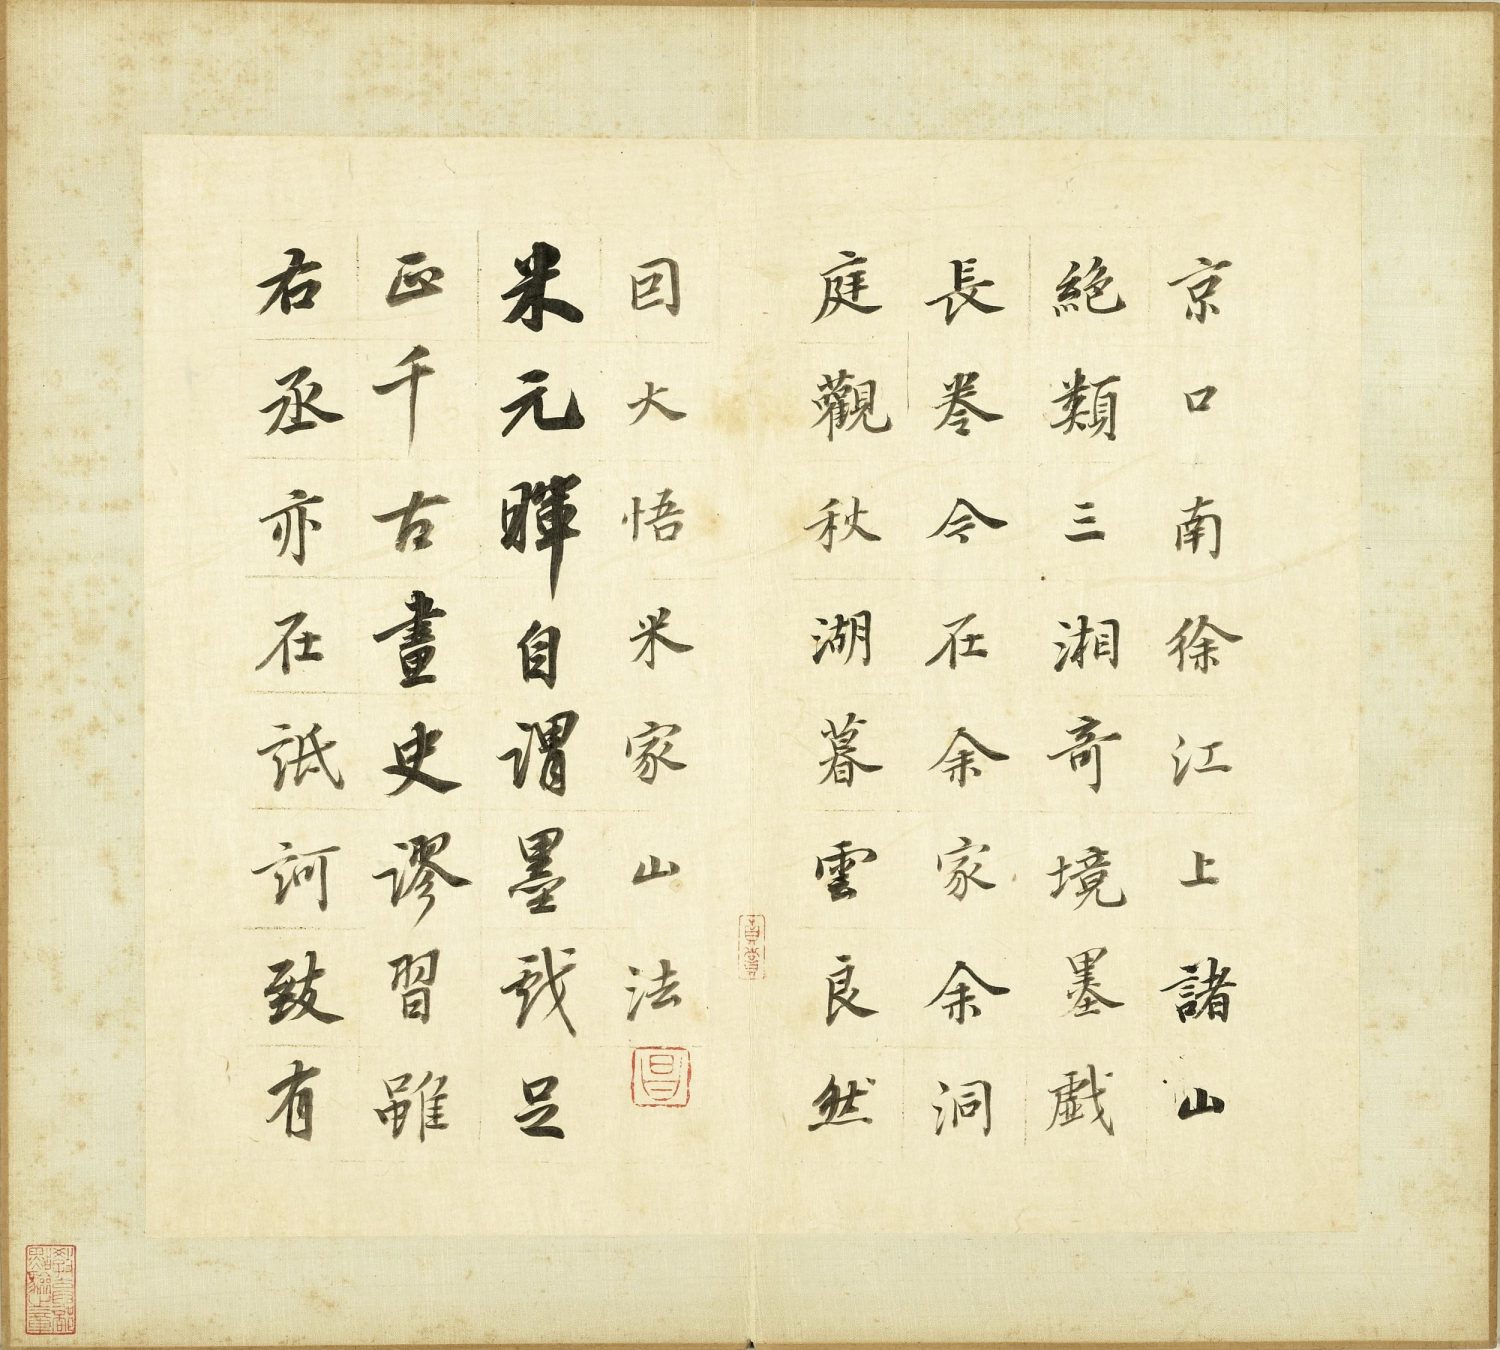 京口南徐江上諸山
絶類三湘奇境墨戲
長卷今在余家余洞
庭觀秋湖暮雲良然
因大悟米家山法
米元暉自謂墨戲足
正千古畫史謬習雖
右丞亦在詆訶致有